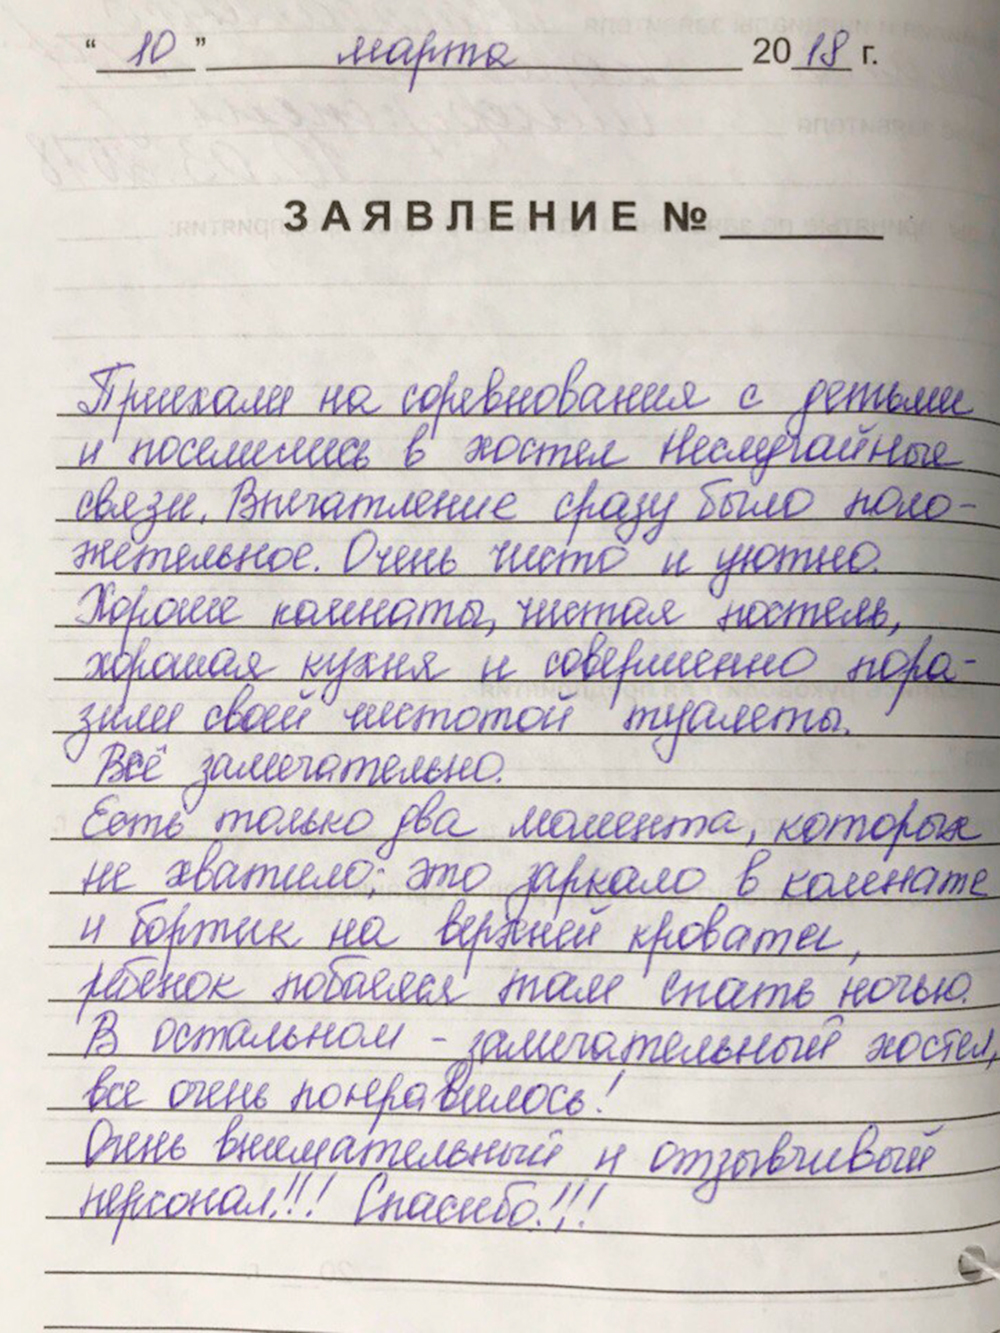 “ 10 ” марта 2018 г.
ЗАЯВЛЕНИЕ №
Приехали на соревнования с детьми
и поселились в хостел Неслучайные
связи. Впечатление сразу было поло-
жетельное. Очень чисто и уютно.
Хорошие комнаты, чистая постель,
хорошая кухня и совершенно пора-
зили своей чистотой туалеты.
Всё замечательно.
Есть только два момента, которых
не хватило: это заркало в комнате
и бортик на верхней кровати,
ребенок побоялся там спать ночью.
В остальном - замечательный хостел,
все очень понравилось!
Очень внимательный и отзывчивый
персонал!!! Спасибо!!!